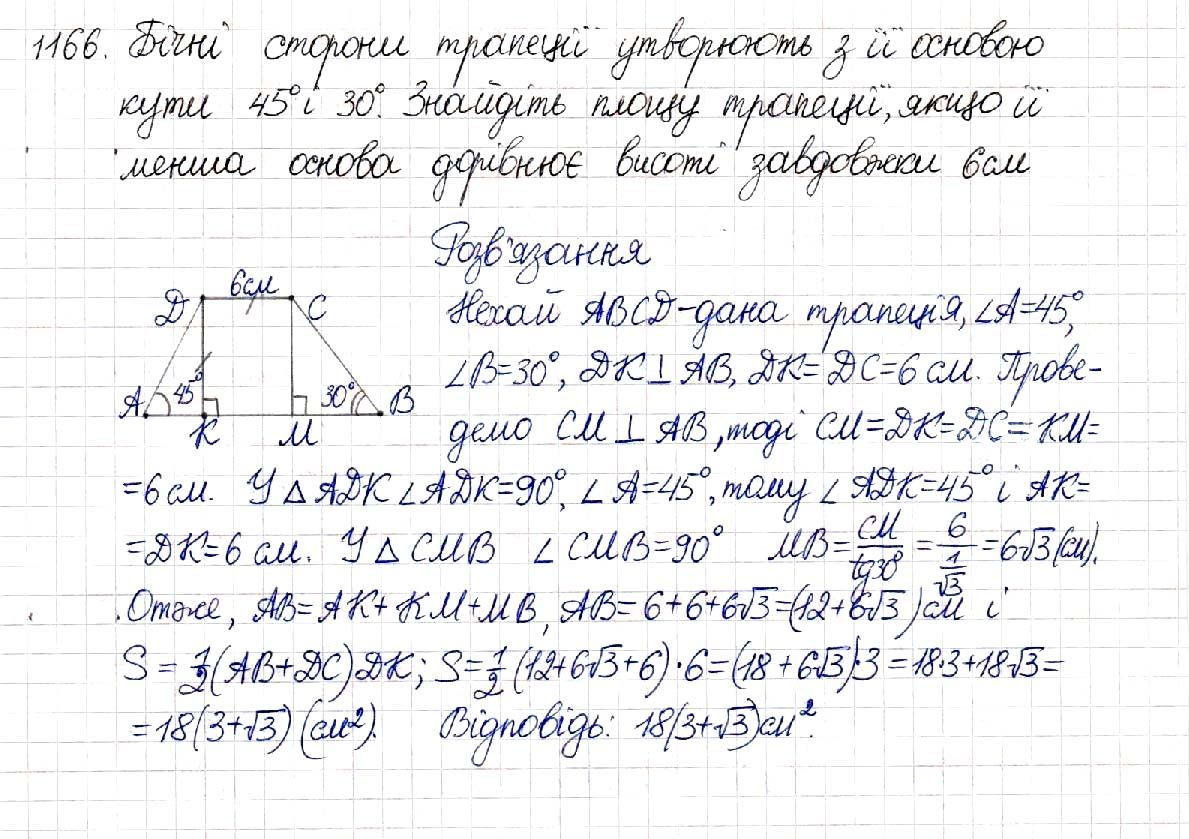 1166. Бічні сторони трапеції утворюють з її основою
кути 45° і 30°. Знайдіть площу трапеції, якщо її
менша основа дорівнює висоті завдовжки 6 см
Розв'язання
6 см
D C
A 45° K M 30° B
Нехай ABCD - дана трапеція, ∠A=45°,
∠B=30°, DK⊥AB, DK=DC=6 см. Прове-
демо CM⊥AB, тоді CM=DK=DC=KM=
=6 см. У △ADK ∠ADK=90°, ∠A=45°, тому ∠ADK=45° і AK=
=DK=6 см. У △CMB ∠CMB=90° MB=CM/tg30°=6/(1/√3)=6√3 (см).
Отже, AB=AK+KM+MB, AB=6+6+6√3=(12+6√3) см і
S=1/2(AB+DC)DK; S=1/2(12+6√3+6)·6=(18+6√3)·3=18·3+18√3=
=18(3+√3) (см²). Відповідь: 18(3+√3) см².